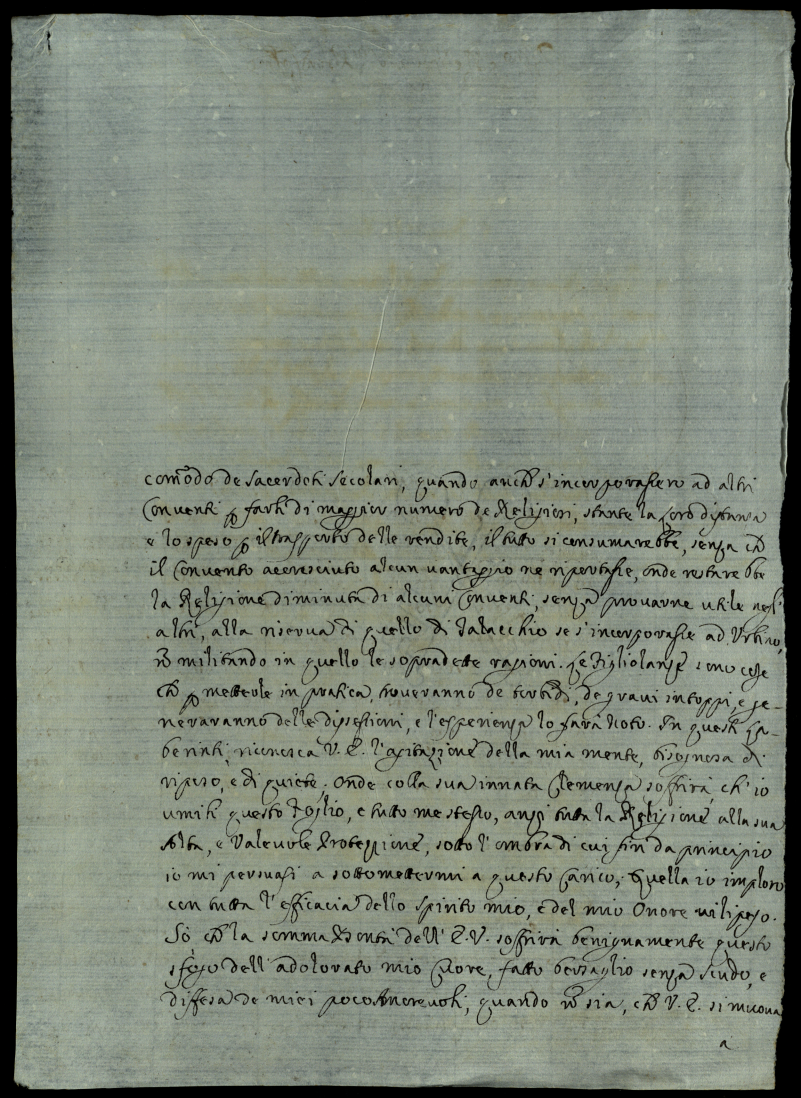 com̃odo de Sacerdoti Secolari, quando anch̃ s'incorporassero ad altri
Conventi ꝑ farli di maggior numero de Religiosi, stante la loro distanza
e lo speso ꝑ il trasporto delle rendite, il tutto si consumarebbe, senza ch̃
il Convento accresciuto alcun vantaggio ne riportasse, onde restarebbe
la Religione diminuta di alcuni Conventi, senza provarne utile negl'
altri, alla riserva di quello di Talacchio se s'incorporasse ad Urbino,
nõ militando in quello le sopradette ragioni. Le Figliolanze sono cose
ch̃ ꝑ metterle in pratica, troveranno de torbidi, de gravi intoppi, e ge-
neraranno delle dissessioni, e l'esperienza lo farà noto. In questi La-
berinti, riconosca V. E. l'agitazione della mia mente, bisognosa di
riposo, e di quiete. Onde colla sua innata Clemenza soffrirà, ch'io
umilj questo Foglio, e tutto me stesso, anzi tutta la Religione alla sua
Alta, e Valevole Protezzione, sotto l'ombra di cui fin da principio
io mi persuasi a sottomettermi a questo Carico, Quella io imploro
con tutta l'efficacia dello Spirito mio, e del mio Onore vilipeso.
Sò ch̃ la somma Bontà dell'E. V. soffrirà benignamente questo
sfogo dell'adolorato mio Cuore, fatto bersaglio senza Scudo, e
diffesa de miei poco Amorevoli, quando nõ sia, ch̃ V. E. si muova
a